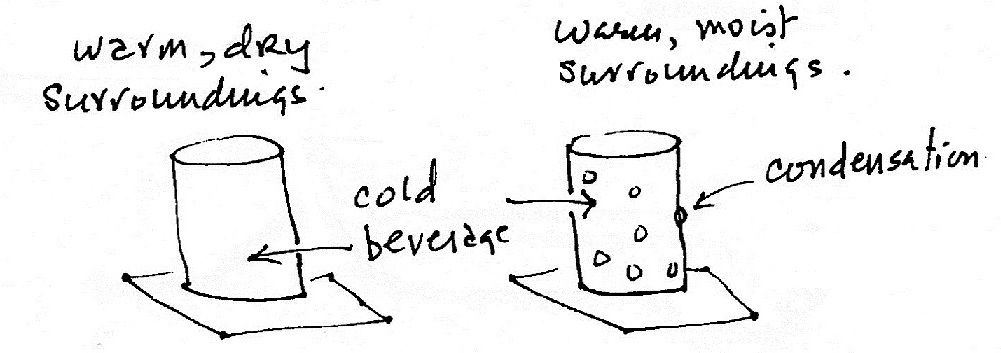 warm, dry
surroundings.
warm, moist
surroundings.
cold
beverage
condensation